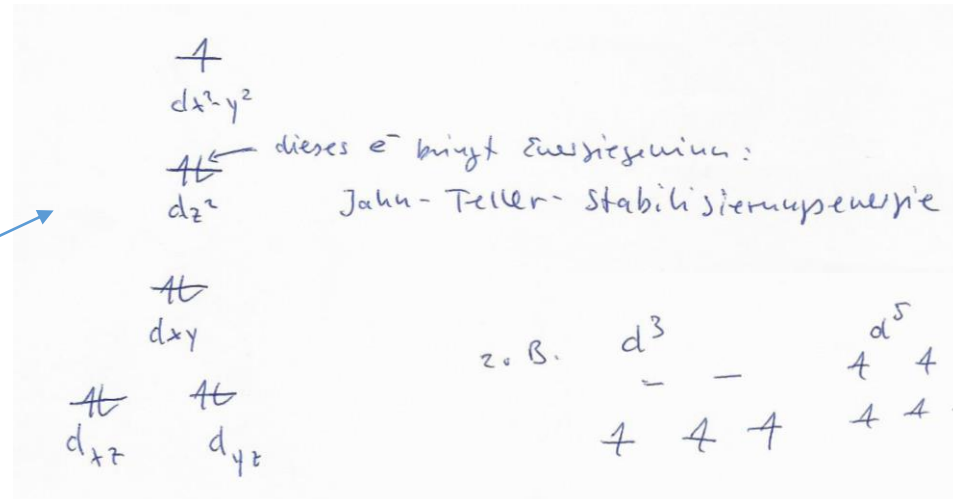 dx²-y²
dieses e⁻ bringt Energiegewinn:
dz²
Jahn-Teller-Stabilisierungsenergie
dxy
z.B. d³ d⁵
dxz dyz